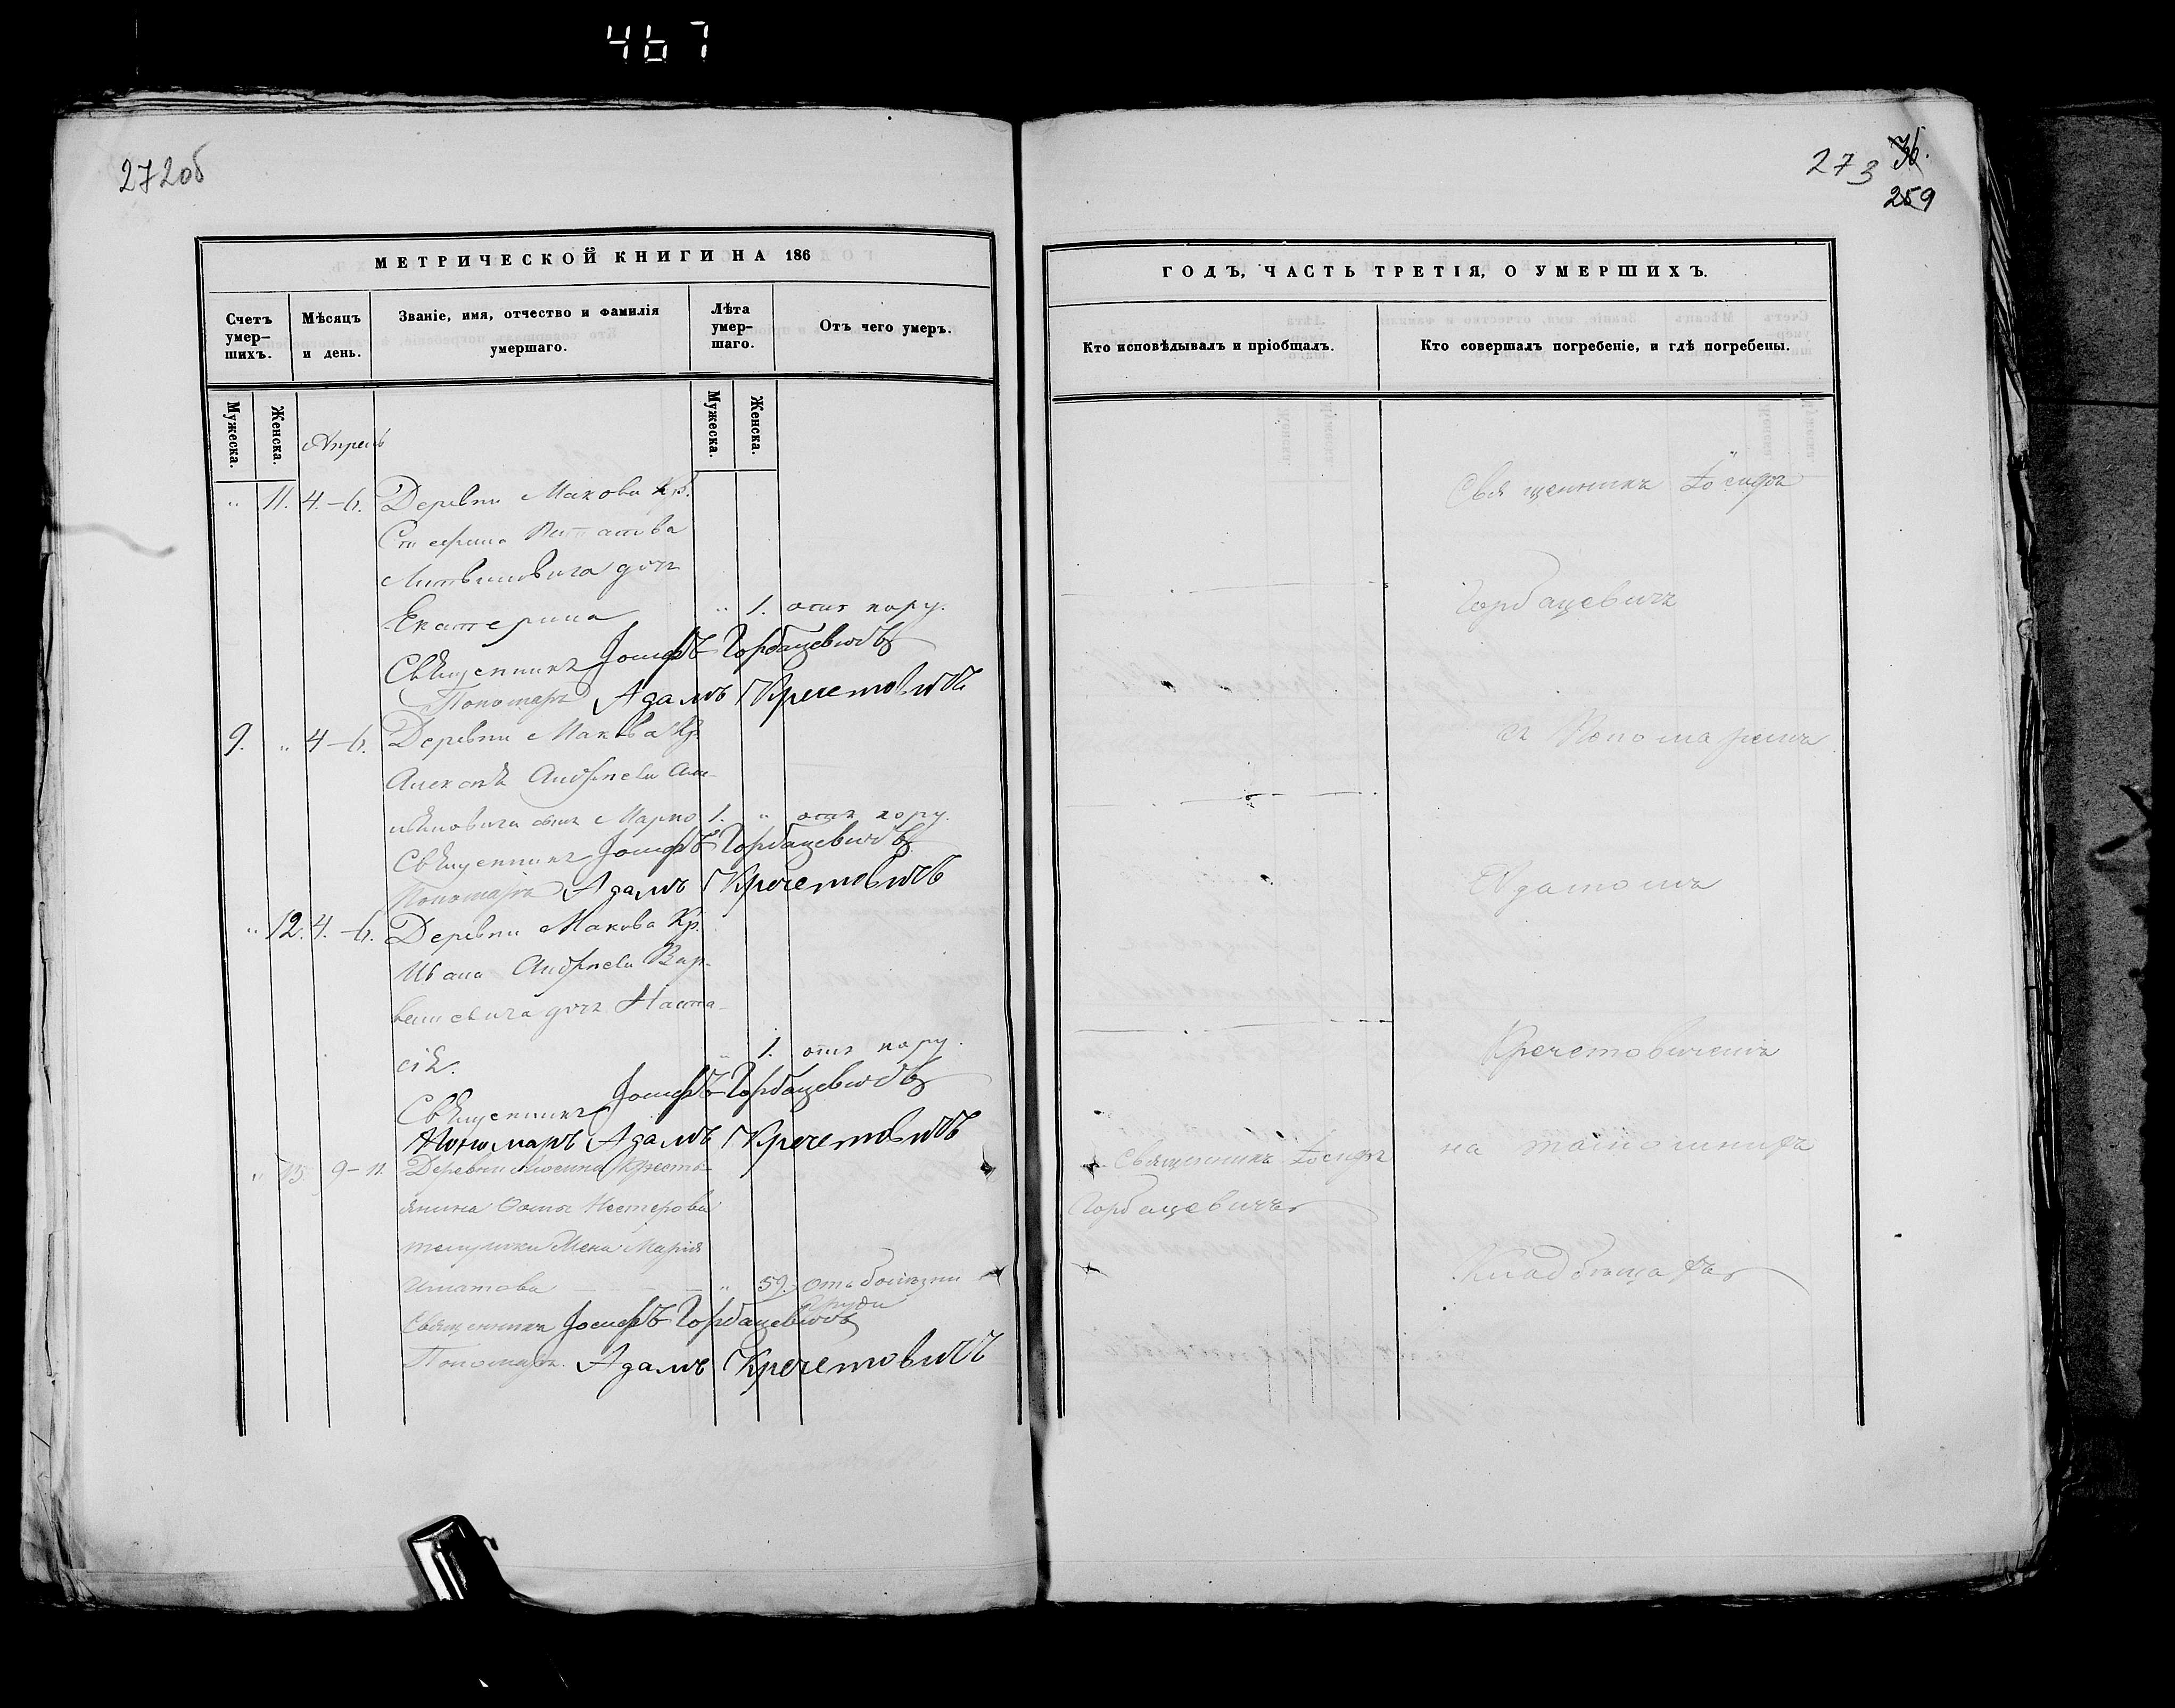 467
272об
МЕТРИЧЕСКОЙ КНИГИ НА 186
Счетъ умер-шихъ.
Мѣсяцъ и день.
Званіе, имя, отчество и фамилія умершаго.
Лѣта умер-шаго.
Отъ чего умеръ.
Мужеска.
Женска.
Мужеска.
Женска.
Апрель
" 11. 4.-6. Деревни Макова кр.
Литвиновича дочь
Екатерина " 1. отъ кору.
Священникъ Іосифъ Горбацевичъ
Пономарь Адамъ Кречетовичъ
9. " 4-6. Деревни Макова Кр.
Алексѣя Андреева
сынъ Марко 1. " отъ кору.
Священникъ Іосифъ Горбацевичъ
Пономарь Адамъ Кречетовичъ
" 12. 4.-6. Деревни Макова Кр.
Ивана Андреева Вар-
дочь Наста-
сія. " 1. отъ кору.
Священникъ Іосифъ Горбацевичъ
Пономарь Адамъ Кречетовичъ
" 13 9-11. Деревни Кресть-
янина Нестерова
жена Марія
" 59. отъ болѣзни
груди
Священникъ Іосифъ Горбацевичъ
Пономарь Адамъ Кречетовичъ
273 36.
259
ГОДЪ, ЧАСТЬ ТРЕТІЯ, О УМЕРШИХЪ.
Кто исповѣдывалъ и пріобщалъ.
Кто совершалъ погребеніе, и гдѣ погребены.
Священникъ Іосифъ
Горбацевичъ
съ Пономаремъ
Адамомъ
Кречетовичемъ
на
Кладбищахъ
Священникъ Іосифъ
Горбацевичъ